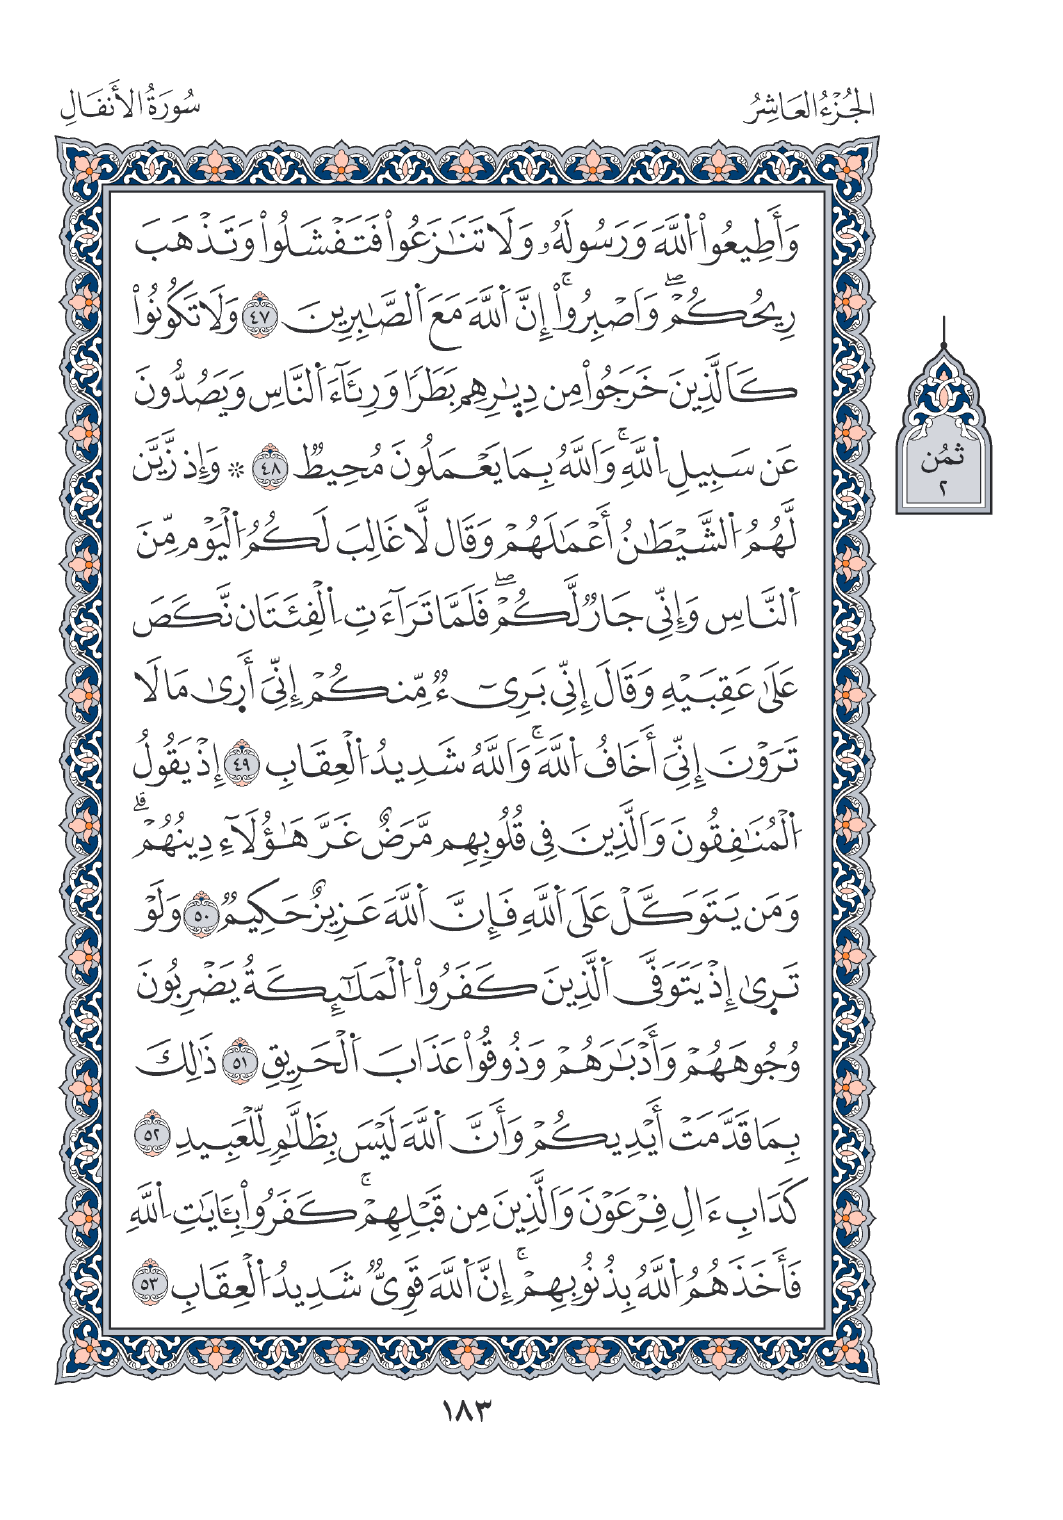 الجُزْءُ العَاشِرُ
سُورَةُ الأَنفَالِ
وَأَطِيعُواْ اُللَّهَ وَرَسُولَهُۥ وَلَا تَنَٰزَعُواْ فَتَفْشَلُواْ وَتَذْهَبَ
رِيحُكُمْۖ وَاَصْبِرُوٓاْۚ إِنَّ اَللَّهَ مَعَ اَلصَّٰبِرِينَ ٤٧ وَلَا تَكُونُواْ
كَالَّذِينَ خَرَجُواْ مِن دِيٰ۪رِهِم بَطَرٗا وَرِئَآءَ اَلنَّاسِ وَيَصُدُّونَ
عَن سَبِيلِ اِللَّهِۚ وَاَللَّهُ بِمَا يَعْمَلُونَ مُحِيطٞ ٤٨ ۞ وَإِذ زَّيَّنَ
لَّهُمُ اُلشَّيْطَٰنُ أَعْمَٰلَهُمْ وَقَال لَّا غَالِبَ لَكُمُ اُلْيَوْم مِّنَ
اَلنَّاسِ وَإِنِّي جَارٞ لَّكُمْۖ فَلَمَّا تَرَآءَتِ اِلْفِئَتَان نَّكَصَ
عَلَىٰ عَقِبَيْهِ وَقَالَ إِنِّي بَرِيٓءٞ مِّنكُمْ إِنِّيَ أَر۪ىٰ مَا لَا
تَرَوْنَ إِنِّيَ أَخَافُ اُللَّهَۚ وَاَللَّهُ شَدِيدُ اُلْعِقَابِ ٤٩ إِذْ يَقُولُ
اُلْمُنَٰفِقُونَ وَاَلَّذِينَ فِي قُلُوبِهِم مَّرَضٌ غَرَّ هَٰٓؤُلَآءِ دِينُهُمْۗ
وَمَن يَتَوَكَّلْ عَلَى اَللَّهِ فَإِنَّ اَللَّهَ عَزِيزٌ حَكِيمٞ ٥٠ وَلَوْ
تَر۪ىٰ إِذْ يَتَوَفَّى اَلَّذِينَ كَفَرُواْ اُلْمَلَٰٓئِكَةُ يَضْرِبُونَ
وُجُوهَهُمْ وَأَدْبَٰرَهُمْ وَذُوقُواْ عَذَابَ اَلْحَرِيقِ ٥١ ذَٰلِكَ
بِمَا قَدَّمَتْ أَيْدِيكُمْ وَأَنَّ اَللَّهَ لَيْسَ بِظَلَّٰمٖ لِّلْعَبِيدِ ٥٢
كَدَابِ ءَالِ فِرْعَوْنَ وَاَلَّذِينَ مِن قَبْلِهِمْۚ كَفَرُواْ بِـَٔايَٰتِ اِللَّهِ
فَأَخَذَهُمُ اُللَّهُ بِذُنُوبِهِمْۚ إِنَّ اَللَّهَ قَوِيّٞ شَدِيدُ اُلْعِقَابِ ٥٣
ثمُن
٢
١٨٣